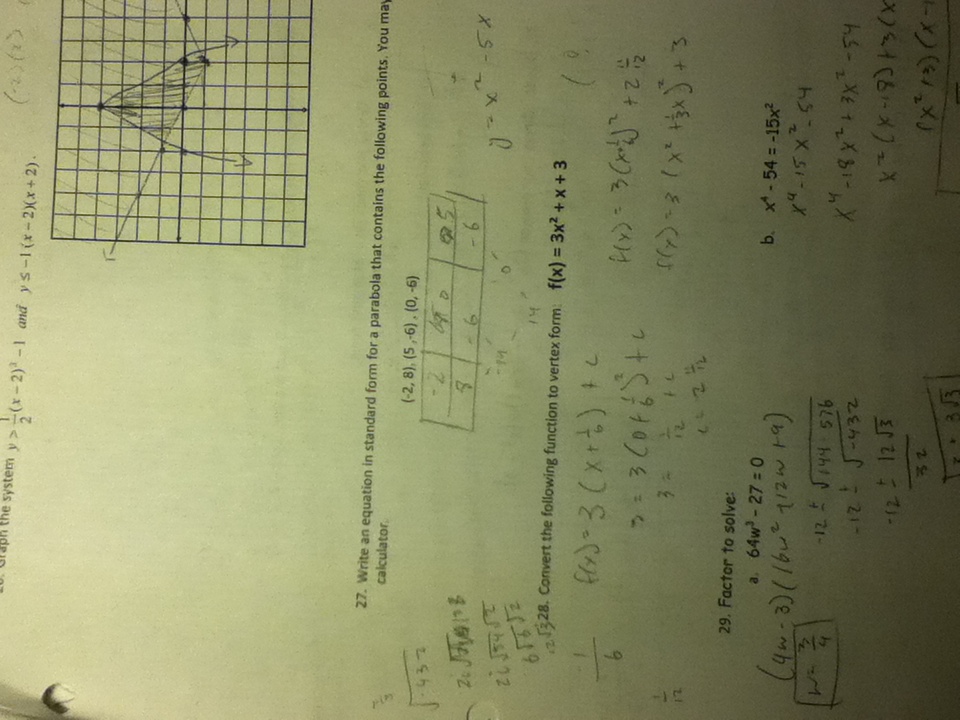 Graph the system y > 1/2 (x - 2)² - 1 and y ≤ -1 (x - 2)(x + 2).
27. Write an equation in standard form for a parabola that contains the following points. You may
calculator.
(-2, 8), (5 ,-6) , (0, -6)
-2 0 5
8 -6 -6
-14 0
14
y = x² - 5x
√-432
2i√54√2
6√6√2
12√3
28. Convert the following function to vertex form: f(x) = 3x² + x + 3
-1/6
1/12
f(x) = 3 (x + 1/6) + c
3 = 3 (0 + 1/6)² + c
3 = 1/12 + c
c = 2 11/12
f(x) = 3(x+1/6)² + 2 11/12
f(x) = 3 (x² + 1/3x)² + 3
29. Factor to solve:
a. 64w³ - 27 = 0
(4w - 3)(16w² + 12w + 9)
w = 3/4
-12 ± √144 - 576
-12 ± √-432
-12 ± 12√3
32
b. x⁴ - 54 = -15x²
x⁴ - 15x² - 54
x⁴ - 18x² + 3x² - 54
x² (x - 18) + 3(x
(x² + 3)(x -